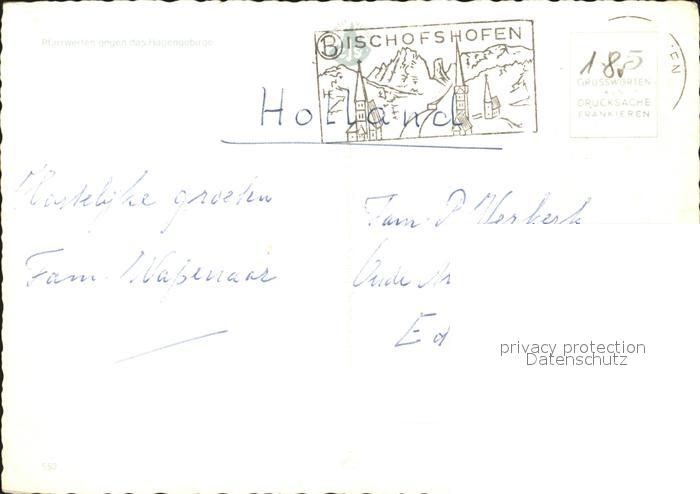 Pfarrwerfen gegen das Hagengebirge
BISCHOFSHOFEN
185
GRUSSWORTEN
DRUCKSACHE
FRANKIEREN
Holland
Hartelijke groeten
Fam. Wapenaar
Fam. P Verkerk
Oude
Ed
privacy protection
Datenschutz
552